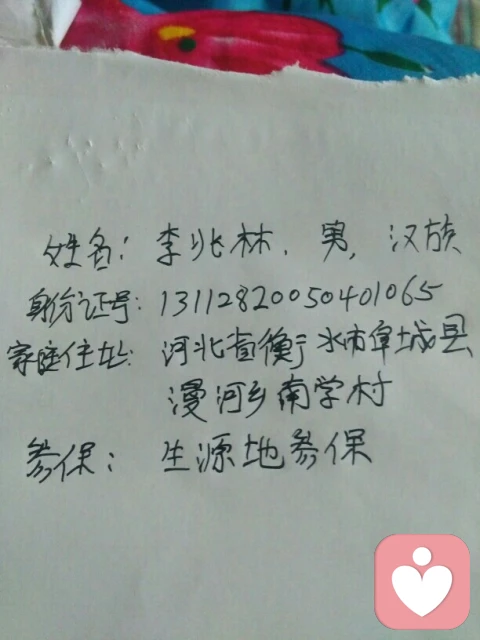 姓名：李兆林、男，汉族
身份证号：13112820050401065
家庭住址：河北省衡水市阜城县
漫河乡南学村
参保：生源地参保